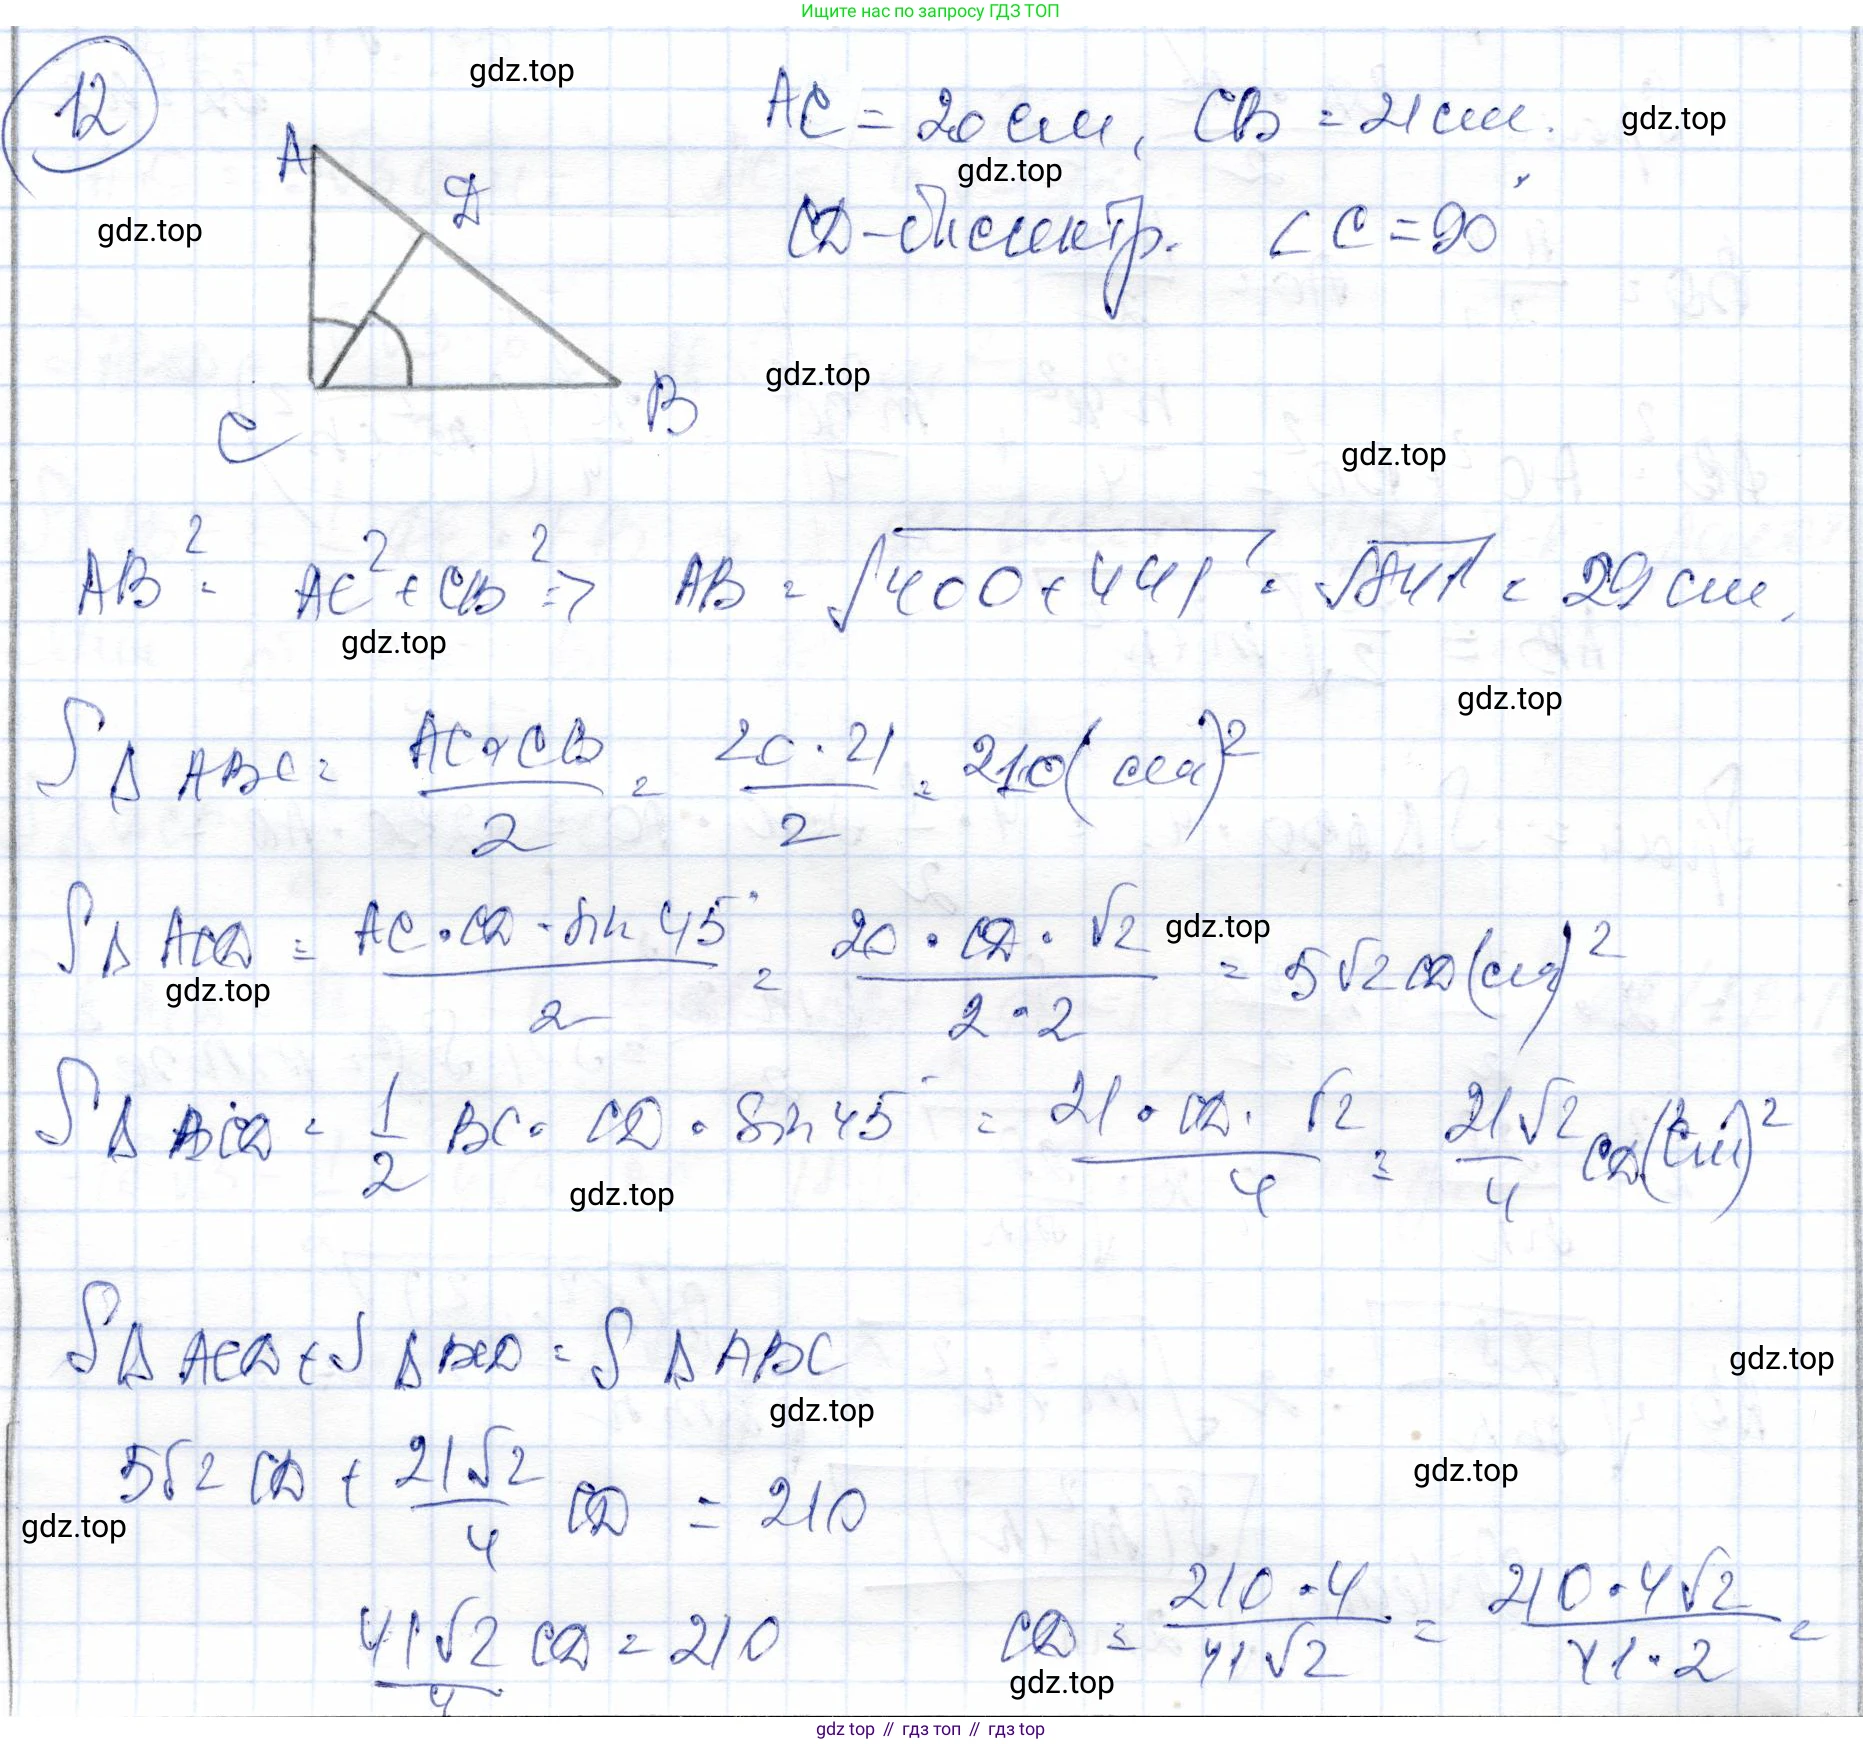 Ищите нас по запросу ГДЗ ТОП
12
gdz.top
AC = 20 см, CB = 21 см.
gdz.top
gdz.top
CD - биссектр. ∠C = 90°
gdz.top
A
D
C
B
gdz.top
gdz.top
AB² = AC² + CB² => AB = √400+441 = √841 = 29 см,
gdz.top
gdz.top
S Δ ABC = AC·CB/2 = 20·21/2 = 210 (см)²
S Δ ACD = AC·CD·sin 45°/2 = 20·CD·√2/2·2 = 5√2 CD (см)²
gdz.top
gdz.top
S Δ BCD = 1/2 BC · CD · sin 45° = 21·CD·√2/4 = 21√2/4 CD (см)²
gdz.top
S Δ ACD + S Δ BCD = S Δ ABC
gdz.top
gdz.top
5√2 CD + 21√2/4 CD = 210
gdz.top
gdz.top
41√2/4 CD = 210 CD = 210·4/41√2 = 210·4√2/41·2 =
gdz.top
gdz top // гдз топ // гдз top